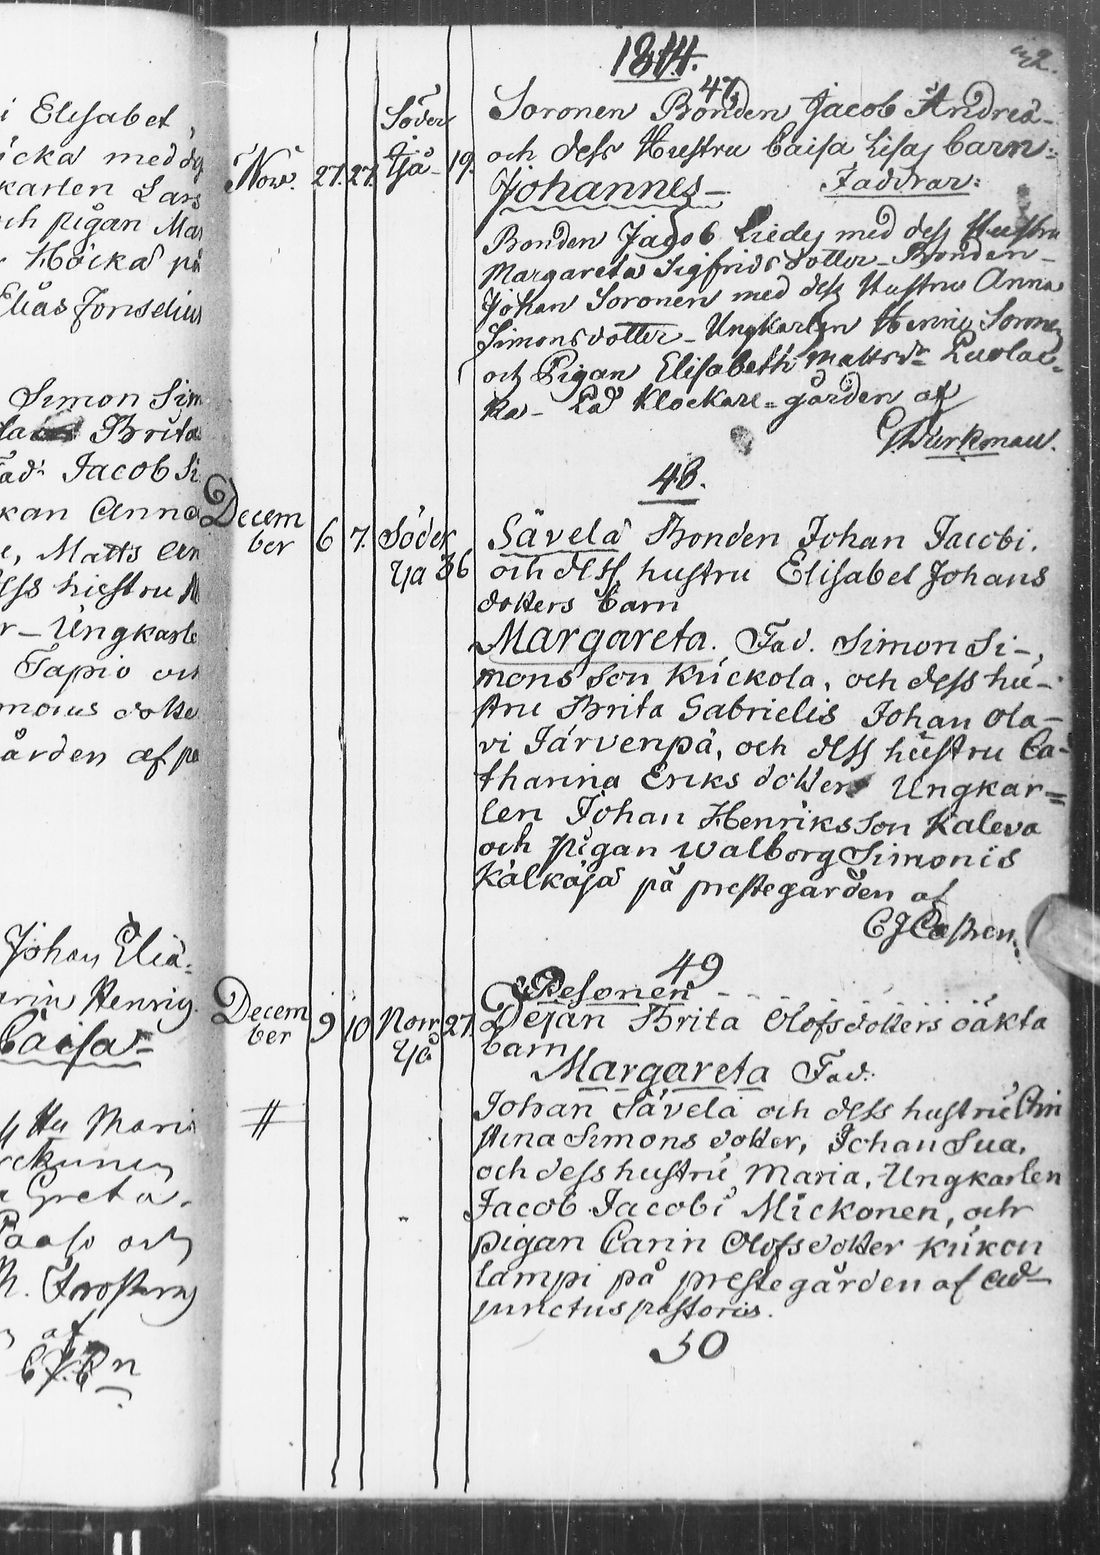 i Elisabet
icka med ds
karlen Lars
ch pigan Ma
Höckä på
Elias Jonselius
Simon Sim
Brita
Fad. Jacob Si
kan Anna
Matts An
dess hustru M
r - Ungkarle
Tapio och
mons dotte
gården af pa
Johan Eliæ
arin Henrig
Caisa
Hu Maria
a Greta
Paaso och
af
1814.
47.
Söder Soronen Bonden Jacob Andreæ
Nov. 27. 27. yå 19. och dess Hustru Caisa Lisas barn:
Johannes Faddrar:
Bonden Jacob Liedes med dess Hustru
Margareta Sigfrids dotter - Bonden
Johan Soronen med dess Hustru Anna
Simons dotter - Ungkarlen Henric Soronen
och Pigan Elisabeth Mattsdr Luola=
ka - På klockare=gården af
Wurkman.
48.
Decem
ber 6 7. Söder Sävelä Bonden Johan Jacobi.
yå 36 och dess hustru Elisabet Johans
dotters barn
Margareta. Fad. Simon Si-
mons son Kuckola, och dess hu-
stru Brita Gabrielis Johan Ola-
vi Järvenpä, och dess hustru Ca-
tharina Eriks dotter Ungkar=
len Johan Henriksson Kaleva
och pigan Walborg Simonis
Kälkäjä på prestegården af
C J Castren.
49
Pesonen
Decem
ber 9 10 Norr 27. Dejan Brita Olofsdotters oäkta
yå barn
Margareta Fad.
Johan Sävelä och dess hustru Chri
stina Simons dotter, Johan Sua,
och dess hustru Maria, Ungkarlen
Jacob Jacobi Mickonen, och
pigan Carin Olofsdotter Kukon
lampi på prestegården af Ad-
junctus pastoris.
50